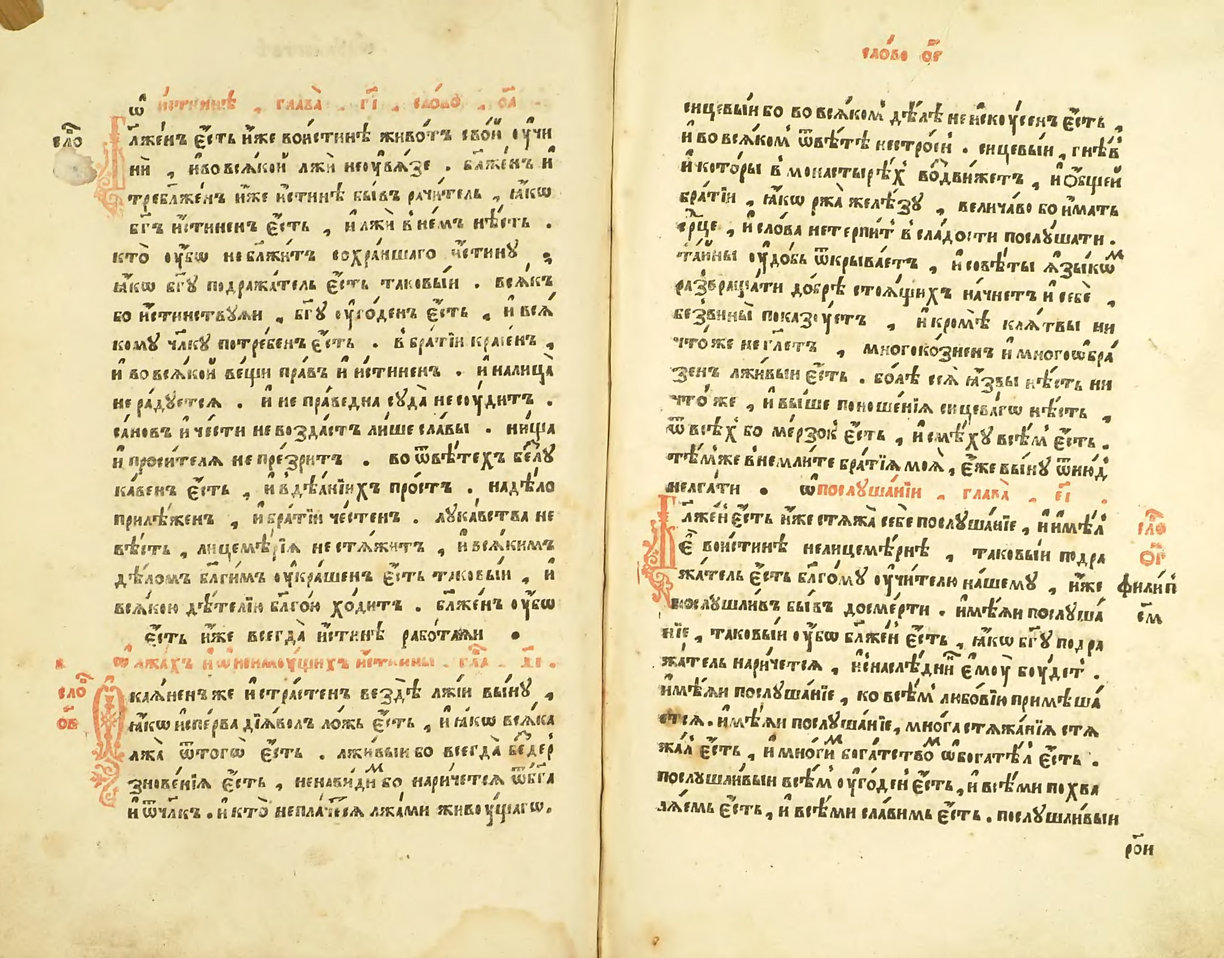 ѡ҆ и҆́стиннѣ , глава̀ . г҃і . сло́во , о҃а .
сло́
Бл҃же́нъ є҆́сть и҆́же вои́стинѣ живо́тъ сво́й ᲂу҆чи
нѝ , и҆ во всѧ́кой лжѝ не ᲂу҆вѧ́зе . бл҃же́нъ и҆
требл҃же́нъ и҆́же и҆́стинѣ бы́въ рачи́тель , ꙗ҆́кѡ
бг҃ъ и҆́стиненъ є҆́сть , и҆ лжѝ в не́мъ нѣ́сть .
кто̀ ᲂу҆́бѡ не бл҃жи́тъ сохра́ншаго и҆́стину ,
ꙗ҆́кѡ бг҃у подража́тель є҆́сть таковы́и . всѧ́къ
бо и҆́стинствуѧи , бг҃у ᲂу҆го́денъ є҆́сть , и҆ всѧ́
кому чл҃ку потре́бенъ є҆́сть . в бра́тіи кра́сенъ ,
и҆ во всѧ́кой ве́щи пра́въ и҆ и҆́стиненъ . и҆ на лица̀
не ра́дуетсѧ . и҆ не пра́ведна суда̀ не су́дитъ .
са́новъ и҆ че́сти не возда́стъ ли́ше сла́вы . ни́ща
и҆ проси́телѧ не пре́зритъ . во ѿвѣ́техъ бе́лу
ка́венъ є҆́сть , и҆ в дѣѧ́ніихъ про́стъ . на дѣ́ло
прилѣ́женъ , и҆ бра́тіи че́стенъ . лука́вства не
вѣ́сть , лицемѣ́рїѧ не стѧжи́тъ , и҆ всѧ́кимъ
дѣ́ломъ бл҃ги́мъ ᲂу҆кра́шенъ є҆́сть таковы́и , и҆
всѧ́кою дѣ́телїю бл҃го́ю хо́дитъ . бл҃же́нъ ᲂу҆́бѡ
є҆́сть и҆́же всегда̀ и҆́стинѣ рабо́таѧи .
ѡ҆ лжа́хъ и҆ ѡ҆ неиму́щихъ и҆́стинны . гла̀ . д҃і .
сло́
о҃в
Ѻ҆каѧ́ненъ же и҆ стра́стенъ вездѣ̀ лжі́и вы́ну ,
ꙗ҆́кѡ и҆спе́рва дїѧ́волъ ло́жь є҆́сть , и҆ ꙗ҆́кѡ всѧ́ка
лжа̀ ѿ того̀ є҆́сть . лжи́выи бо всегда̀ без̾ дер
знове́нїѧ є҆́сть , ненави́дим бо нарича́етсѧ ѿ бг҃а
и҆ ѿ чл҃къ . и҆ кто̀ не пла́четсѧ лжа́ми живу́щагѡ .
сло́во о҃г
сицевы́и бо во всѧ́ком дѣ́лѣ не и҆ску́сенъ є҆́сть ,
и҆ во всѧ́ком ѿвѣ́тѣ нестро́ен . сицевы́и , гнѣ́в
и҆ кото́ры в монастырѣ́х воздви́жетъ , и҆ ѻ҆́бщей
бра́тїи , ꙗ҆́кѡ ржа̀ желѣ́зу , велича́во бо и҆́мать
ср҃це , и҆ сло́ва не терпи́т в сла́дости послу́шати .
та́йны ᲂу҆до́бь ѿкрыва́етъ , и҆ совѣ́ты ѧ҆зы́ком
развраща́ти до́брѣ стоѧ́щихъ начне́т и҆ себѐ ,
безвины̀ показу́етъ , и҆ кро́мѣ клѧ́твы ни
что́же не гл҃етъ , многоко́зненъ и҆ многоѡ҆́бра
зенъ лжи́выи є҆́сть . бо́лѣ сеѧ̀ ꙗ҆́звы нѣ́сть ни
что́ же , и҆ вы́ше поноше́нїѧ сицева́гѡ нѣ́сть ,
ѿ всѣ́х бо ме́рзок є҆́сть , и҆ смѣ́ху всѣ́м є҆́сть .
тѣ́мже внемли́те бра́тїѧ моѧ̀ , є҆́же вы́ну ѿину́д
не лга́ти . ѡ҆ послуша́нїи , глава̀ , е҃і .
Бл҃же́н є҆́сть и҆́же стѧжа̀ себѐ послуша́нїе , и҆ и҆мѣ́ѧ
сло́
о҃г
є҆̀ вои́стинѣ нелицемѣ́рнѣ , таковы́и подра
жа́тель є҆́сть бл҃го́му ᲂу҆чи́телю на́шему , и҆́же
фили́п
с҃м
послушли́въ бы́въ до сме́рти . и҆мѣ́ѧи послуша́
нїе , таковы́и ᲂу҆́бѡ бл҃же́н є҆́сть , ꙗ҆́кѡ бг҃у подра
жа́тель нарича́етсѧ , и҆ наслѣ́дник є҆му̀ бу́дет .
и҆мѣ́ѧи послуша́нїе , ко всѣ́м любо́вїи примѣша́
етсѧ . и҆мѣ́ѧи послуша́нїе , мно́га стѧжа́нїѧ стѧ
жа́л є҆́сть , и҆ мно́гим бога́тством ѡ҆богатѣ́л є҆́сть .
послушли́выи всѣ́м ᲂу҆го́ден є҆́сть , и҆ всѣ́ми похва
лѧ́емь є҆́сть , и҆ всѣ́ми сла́вимь є҆́сть . послушли́выи
р҃ои